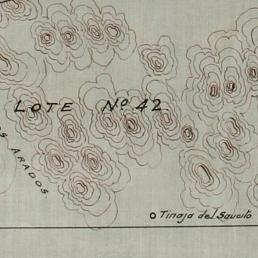 LOTE Nº 42
ARADOS.
Tinaja del Saucito